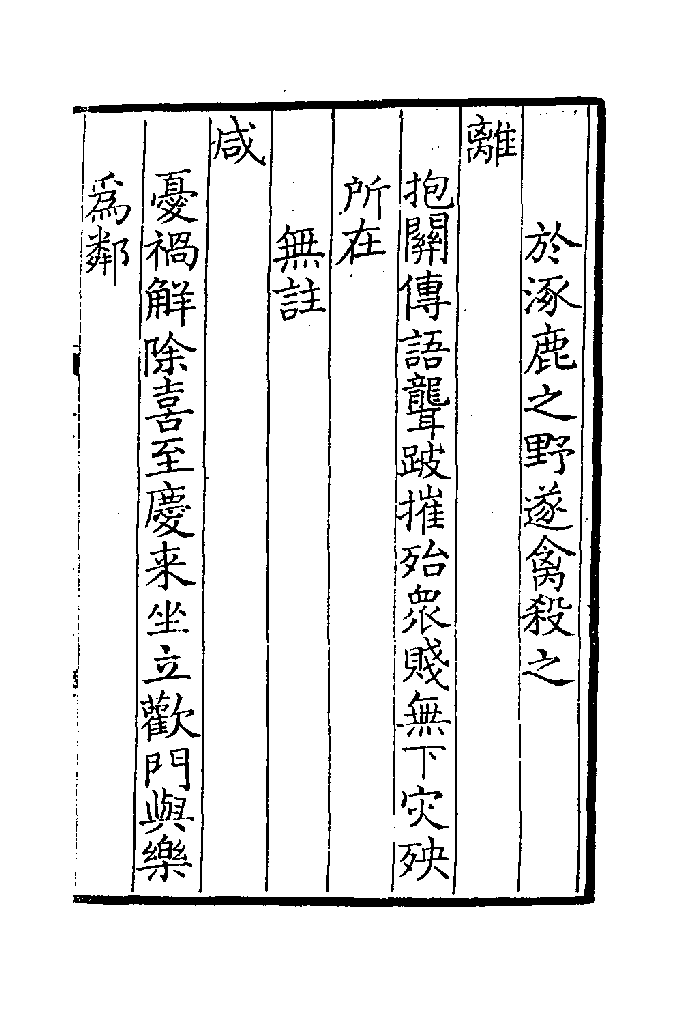 於涿鹿之野遂禽殺之
離
抱關傳語聾跛摧殆衆賤無下灾殃
所在
無註
咸
憂禍解除喜至慶来坐立歡門與樂
爲鄰